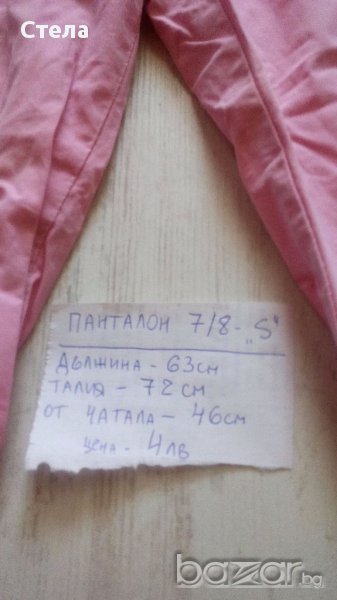 Стела
ПАНТАЛОН 7/8 - „S“
ДЪЛЖИНА - 63см
ТАЛИЯ - 72 см
ОТ ЧАТАЛА - 46см
цена - 4лв
bazar.bg